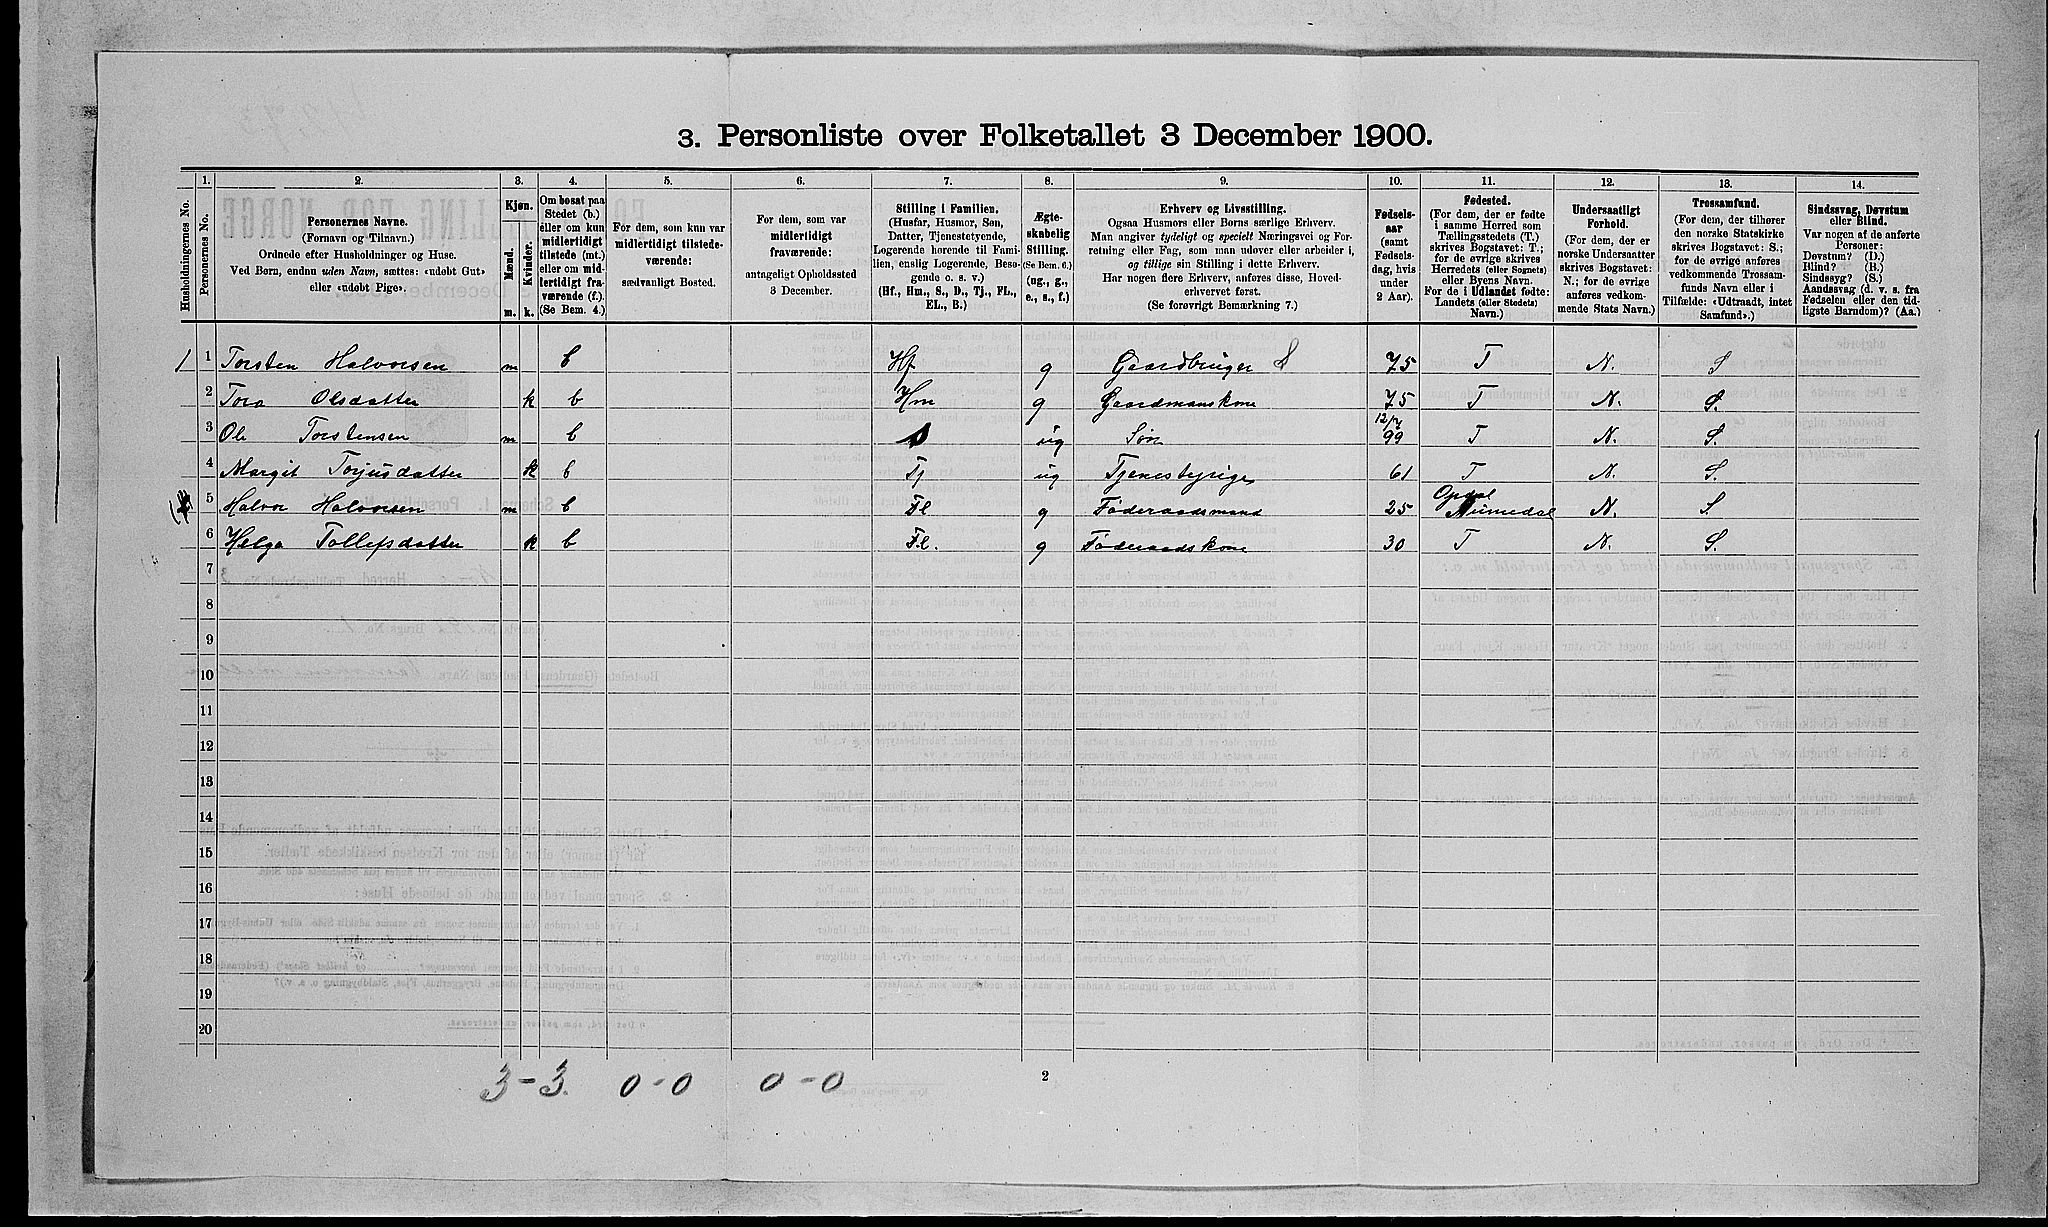 3. Personliste over Folketallet 3 December 1900.
Husholdningernes No.
1.
Personernes No.
2.
Personernes Navne.
(Fornavn og Tilnavn.)
Ordnede efter Husholdninger og Huse.
Ved Børn, endnu uden Navn, sættes: «udøbt Gut»
eller «udøbt Pige».
3.
Kjøn.
Mænd.
Kvinder.
m.
k.
4.
Om bosat paa
Stedet (b.)
eller om kun
midlertidigt
tilstede (mt.)
eller om mid-
lertidigt fra-
værende (f.)
(Se Bem. 4.)
5.
For dem, som kun var
midlertidigt tilstede-
værende:
sædvanligt Bosted.
6.
For dem, som var
midlertidigt
fraværende:
antageligt Opholdssted
3 December.
7.
Stilling i Familien.
(Husfar, Husmor, Søn,
Datter, Tjenestetyende,
Logerende hørende til Fami-
lien, enslig Logerende, Besø-
gende o. s. v.)
(Hf., Hm., S., D., Tj., FL.,
EL., B.)
8.
Ægte-
skabelig
Stilling.
(Se Bem. 6.)
(ug., g.,
e., s., f.)
9.
Erhverv og Livsstilling.
Ogsaa Husmors eller Børns særlige Erhverv.
Man angiver tydeligt og specielt Næringsvei og For-
retning eller Fag, som man udøver eller arbeider i,
og tillige sin Stilling i dette Erhverv.
Har nogen flere Erhverv, anføres disse, Hoved-
erhvervet først.
(Se forøvrigt Bemærkning 7.)
10.
Fødsels-
aar
(samt
Fødsels-
dag, hvis
under
2 Aar).
11.
Fødested.
(For dem, der er fødte
i samme Herred som
Tællingsstedets (T.)
skrives Bogstavet: T.;
for de øvrige skrives
Herredets (eller Sognets)
eller Byens Navn.
For de i Udlandet fødte:
Landets (eller Stedets)
Navn.)
12.
Undersaatligt
Forhold.
(For dem, der er
norske Undersaatter
skrives Bogstavet:
N.; for de øvrige
anføres vedkom-
mende Stats Navn.)
13.
Trossamfund.
(For dem, der tilhører
den norske Statskirke
skrives Bogstavet: S.;
for de øvrige anføres
vedkommende Trossam-
funds Navn eller i
Tilfælde: «Udtraadt, intet
Samfund».)
14.
Sindssvag, Døvstum
eller Blind.
Var nogen af de anførte
Personer:
Døvstum? (D.)
Blind? (B.)
Sindssyg? (S.)
Aandssvag (d. v. s. fra
Fødselen eller den tid-
ligste Barndom)? (Aa.)
1 1 Torsten Halvorsen m b Hf g Gaardbruger 75 T N. S
2 Tora Olsdatter k b Hm g Gaardmanskone 75 T N. S.
3 Ole Torstensen m b S ug Søn 12/7 99 T N. S.
4 Margit Torjusdatter k b Tj ug Tjenestepige 61 T N. S.
5 Halvor Halvorsen m b Fl g Føderaadsmand 25 Opdal Numedal N. S.
6 Helga Tollefsdatter k b Fl. g Føderaadskone 30 T N. S.
7
8
9
10
11
12
13
14
15
16
17
18
19
20
3-3. 0-0 0-0
2